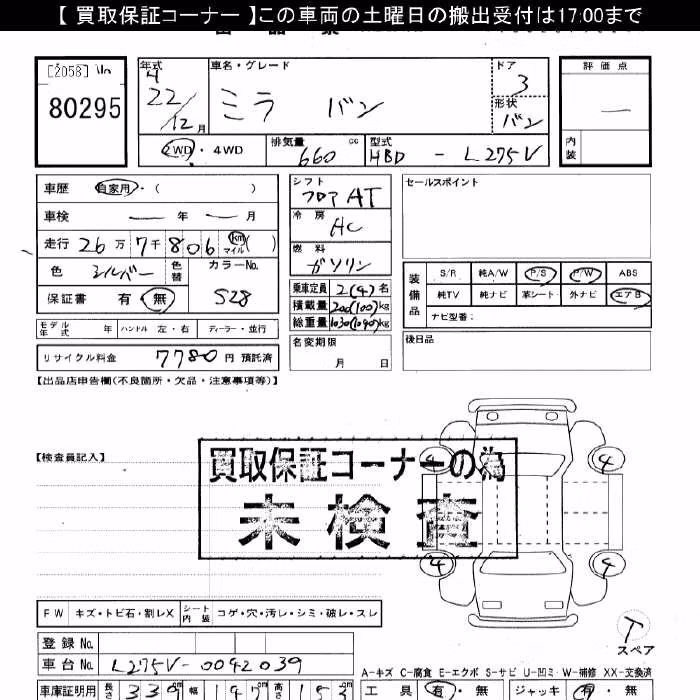 【 買取保証コーナー 】この車両の土曜日の搬出受付は17:00まで
[2058]
80295
年式 車名・グレード ドア 評価点
22/12月 ミラ バン 3 —
形状 バン
内装
2WD・4WD 排気量 660 cc 型式 HBD - L275V
車歴 自家用・( )
車検 — 年 — 月
走行 26万7千806 km マイル ( )
色 シルバー 色替 カラーNo. S28
保証書 有・無
モデル年式 年 ハンドル 左・右 ディーラー・並行
リサイクル料金 7780 円 預託済
シフト フロア AT
冷房 AC
燃料 ガソリン
乗車定員 2(4)名
積載量 200(100)kg
総重量 1030(1040)kg
名変期限 月 日
セールスポイント
装備品 S/R 純A/W P/S P/W ABS
純TV 純ナビ 革シート 外ナビ エアB
ナビ型番：
後日品
【出品店申告欄(不良箇所・欠品・注意事項等)】
【検査員記入】
買取保証コーナーの為
未検査
4 4
4 4
T
スペア
FW キズ・トビ石・割レX シート内装 コゲ・穴・汚レ・シミ・破レ・スレ
登録No.
車台No. L275V-0042039
A-キズ C-腐食 E-エクボ S-サビ U-凹ミ W-補修 XX-交換済
車庫証明用 長さ 339cm 幅 147cm 高さ 153cm 工具 有・無 ジャッキ 有・無